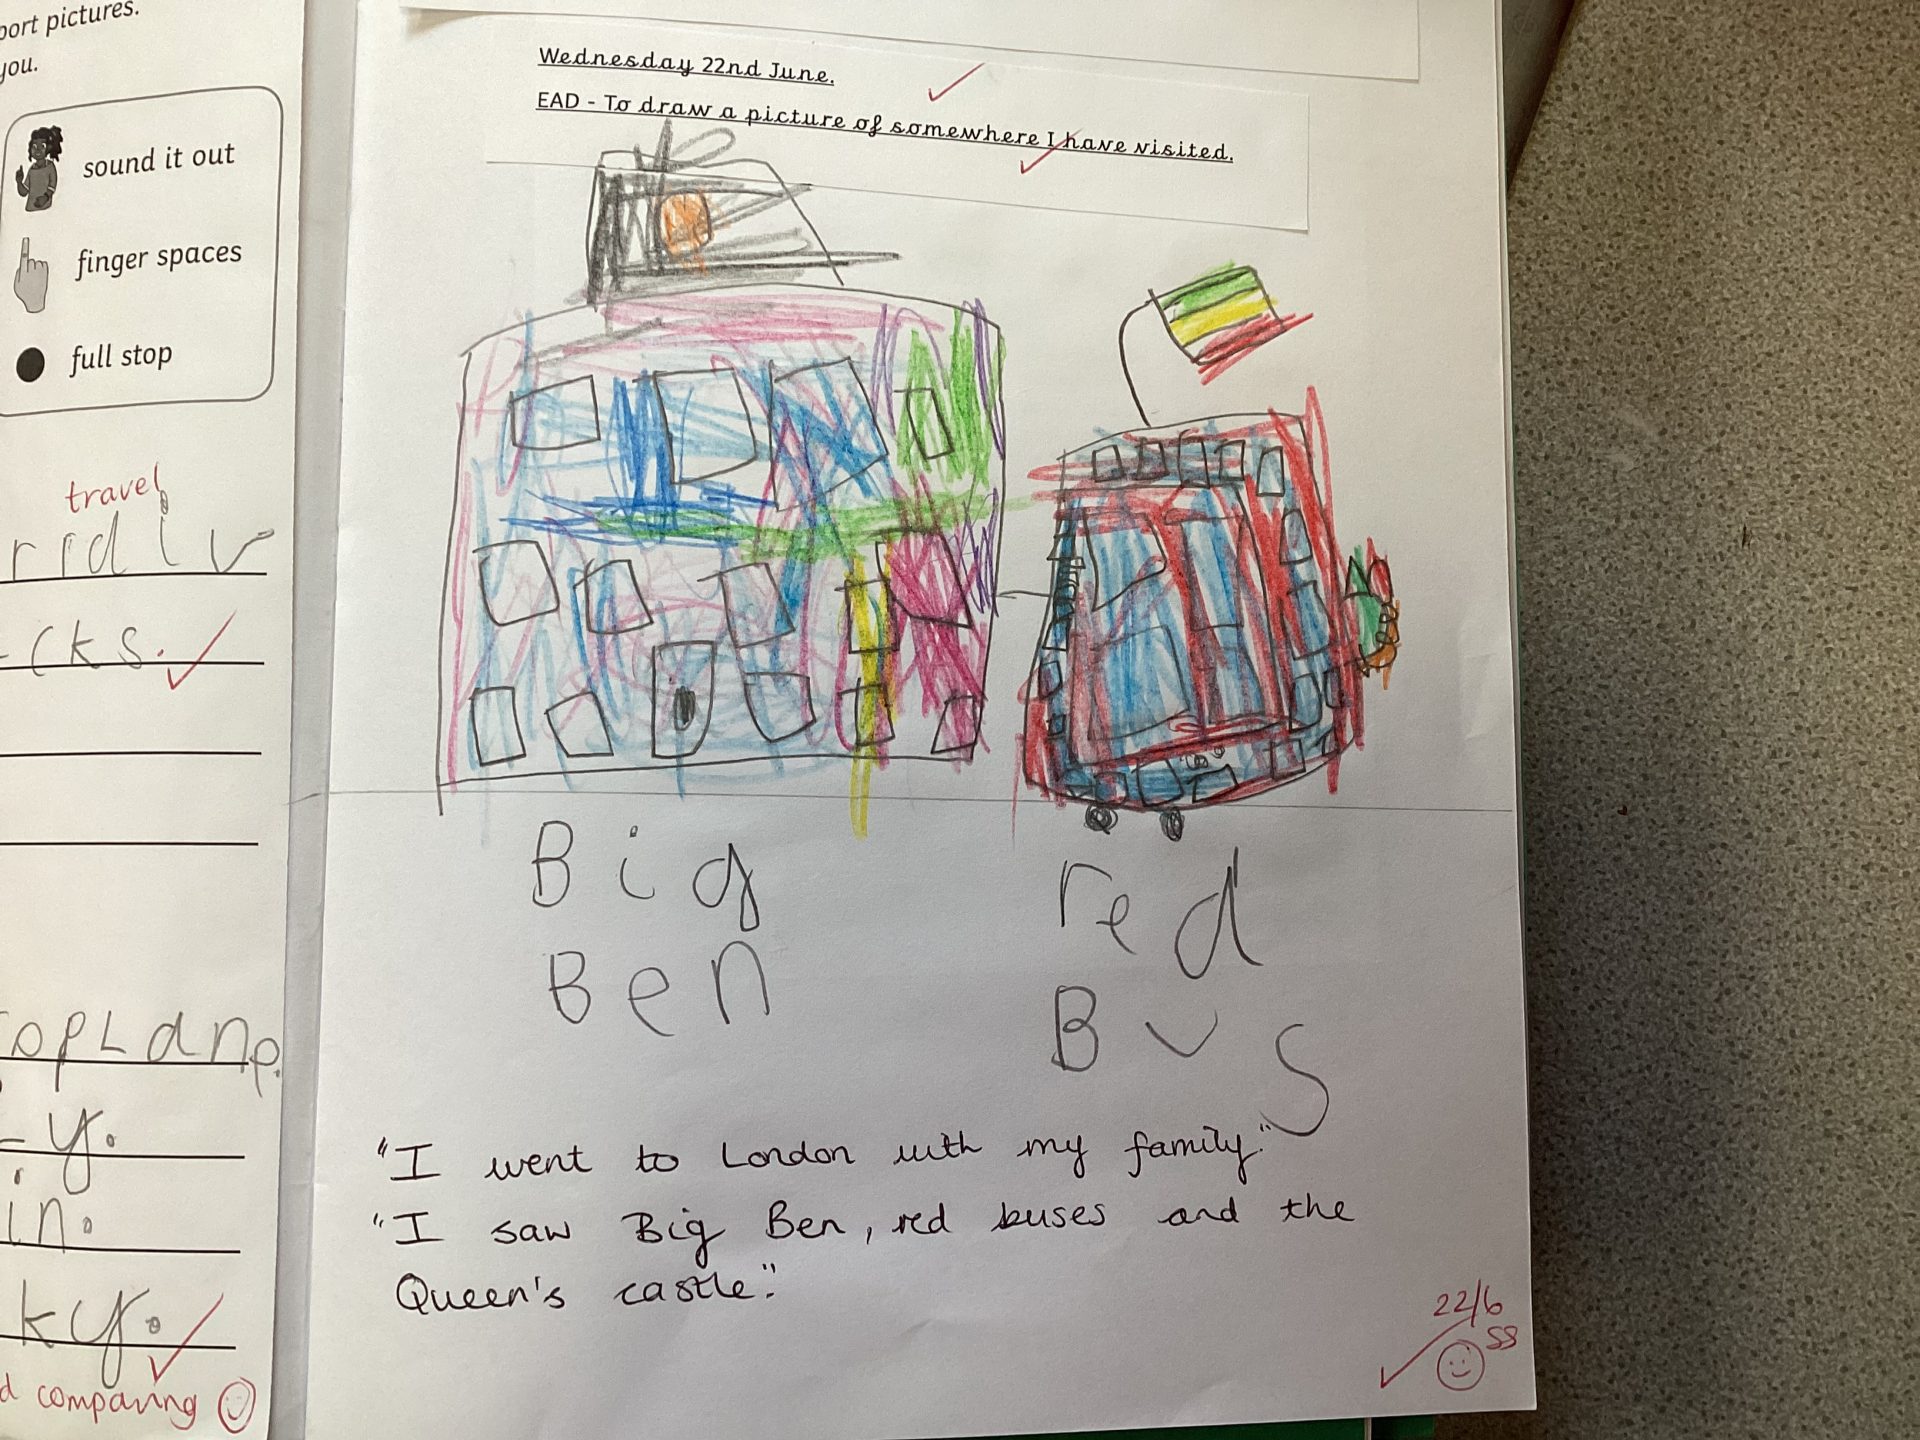 port pictures.
you.
sound it out
finger spaces
full stop
travel
cks.
y.
in.
ky.
comparing
Wednesday 22nd June.
EAD - To draw a picture of somewhere I have visited.
Big
Ben
red
Bus
"I went to London with my family."
"I saw Big Ben, red buses and the
Queen's castle."
22/6
SS